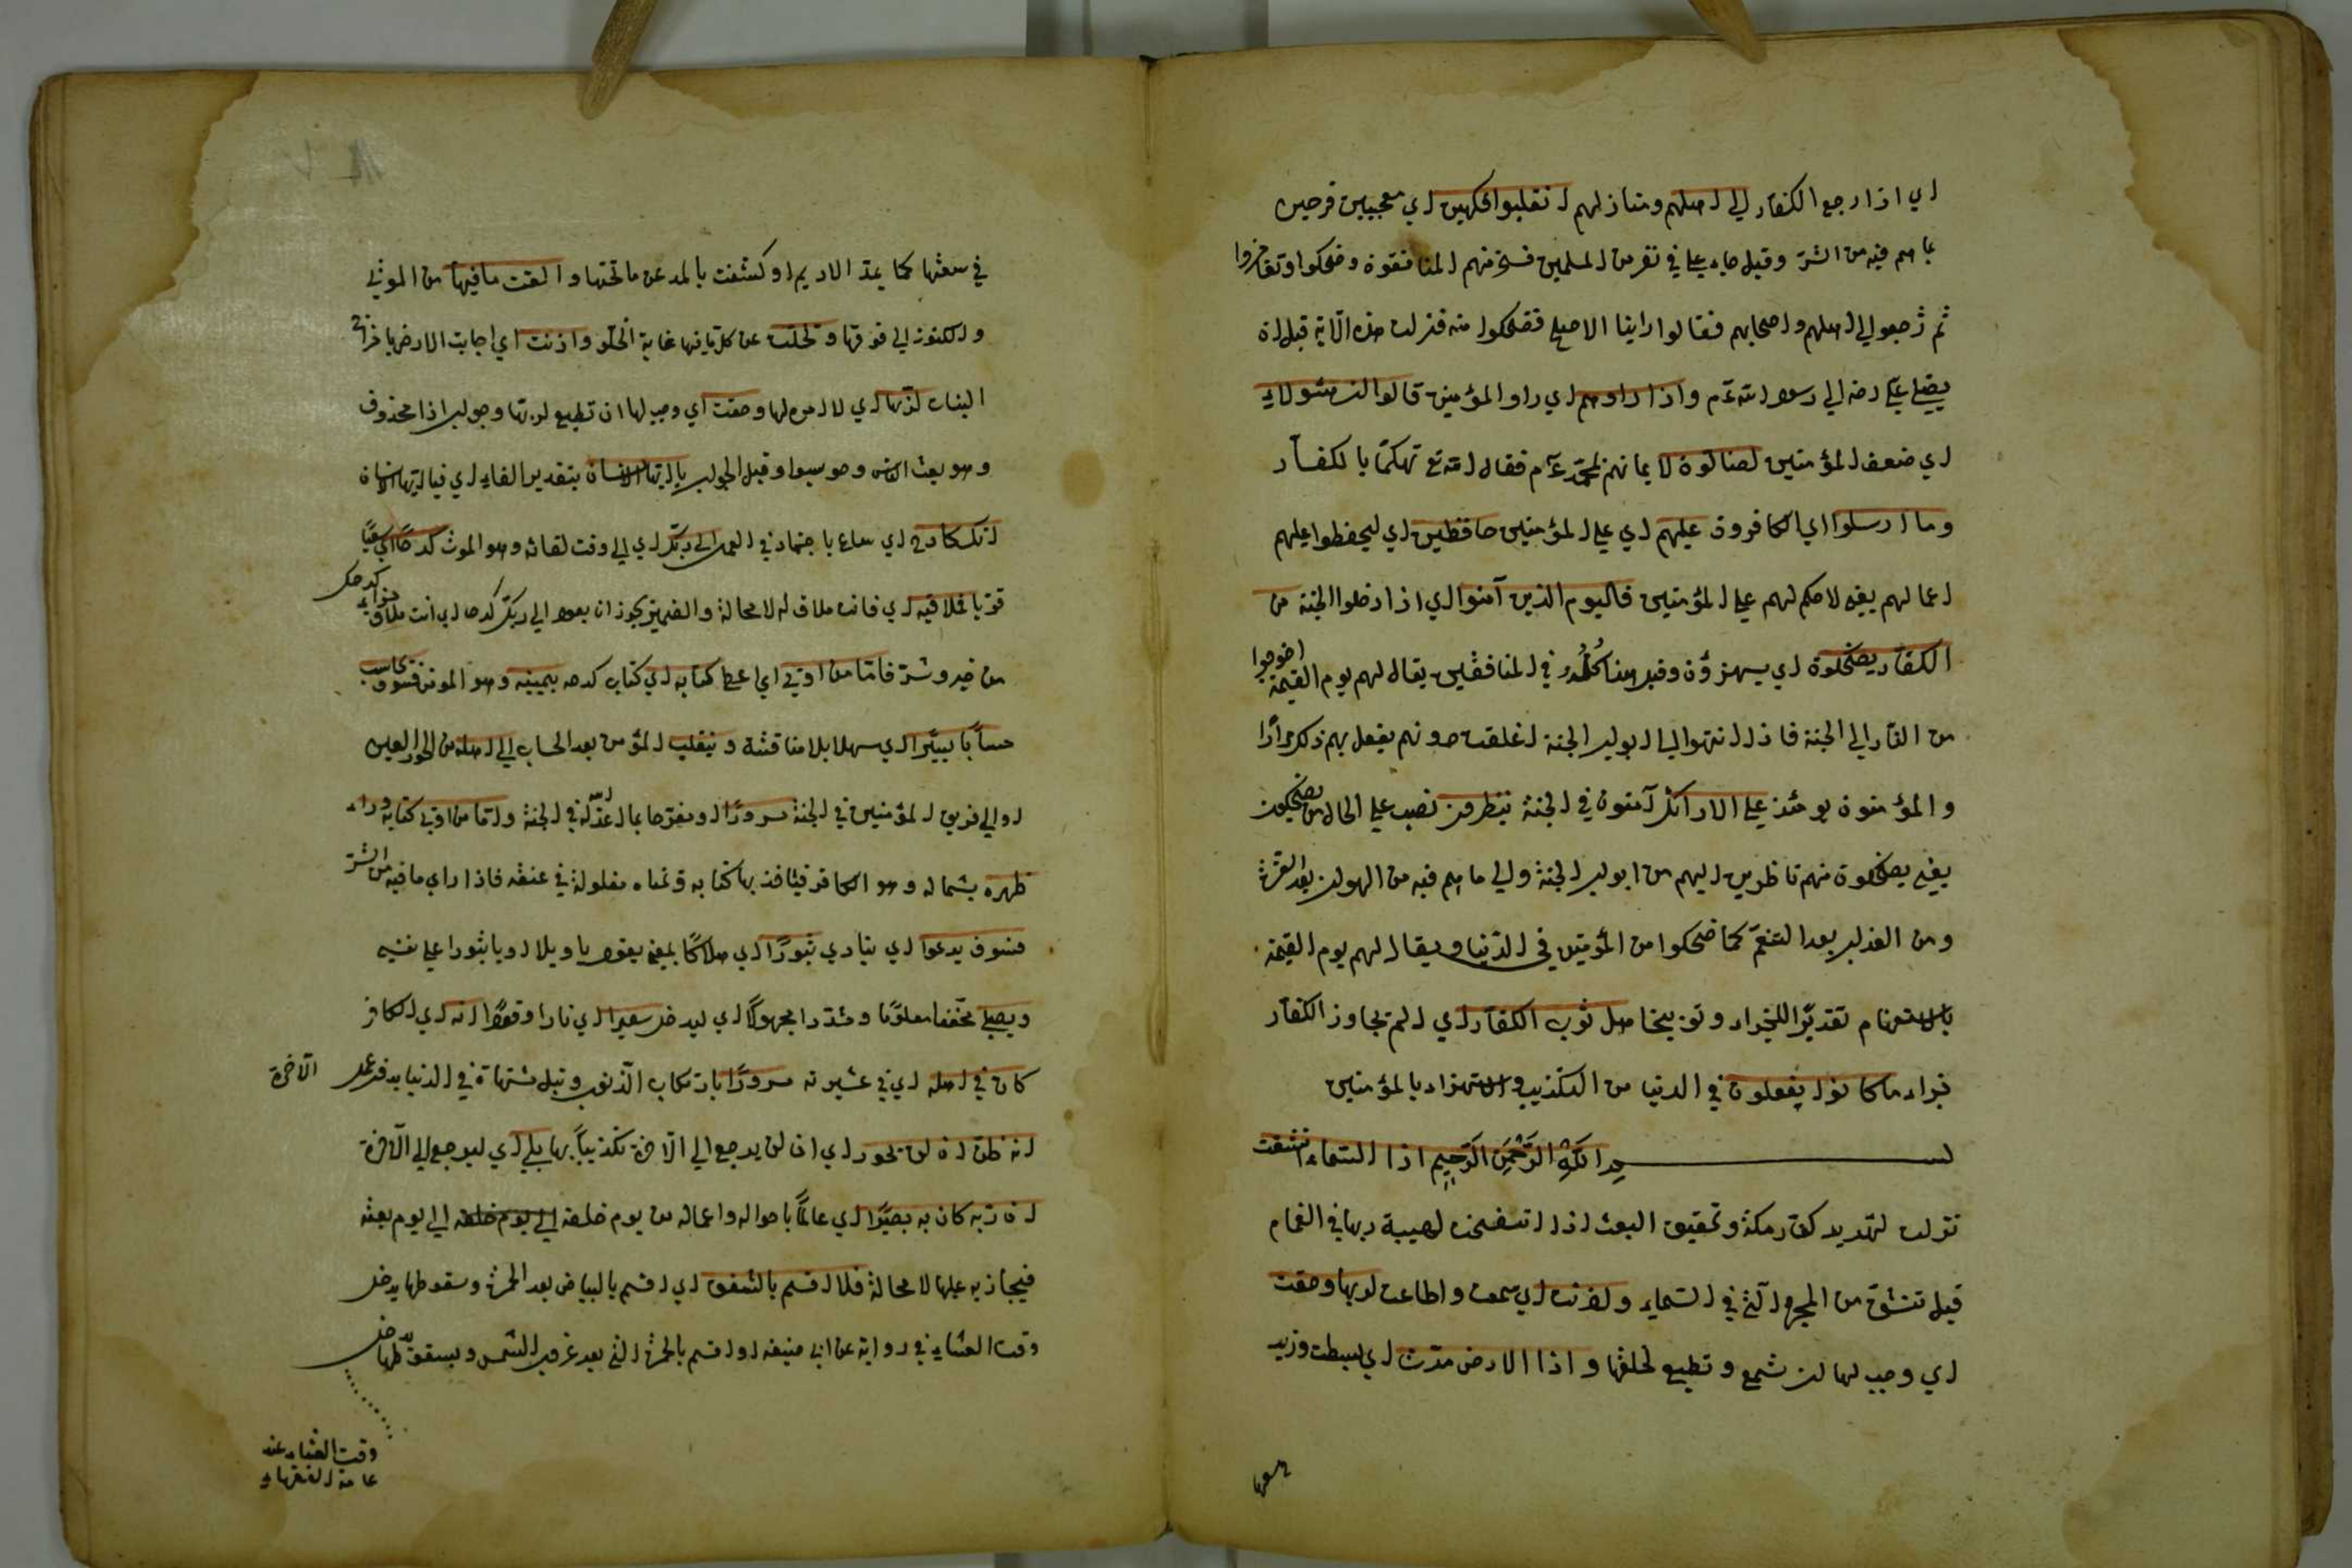 اي اذا رجع الكفار الي اهلهم ومنازلهم انقلبوا فكهين اي معجبين فرحين
بما هم فيه من الشر وقيل جاء علي في نفر من المسلمين فسخر منهم المنافقون وضحكوا وتغامزوا
ثم رجعوا الي اهلهم واصحابهم فقالوا راينا الاصلع فضحكوا منه فنزلت هذه الآية قبل ان
يصل علي رضه الي رسول الله عم واذا راوهم اي راوا المؤمنين قالوا ان هؤلاء
اي ضعف المؤمنين لضالون لايمانهم بمحمد عم فقال الله تع تهكما بالكفار
وما ارسلوا اي الكافرون عليهم اي علي المؤمنين حافظين اي ليحفظوا عليهم
اعمالهم يعني لا حكم لهم علي المؤمنين فاليوم الذين آمنوا اي اذا دخلوا الجنة من
الكفار يضحكون اي يستهزؤن وقيل هذا كله في المنافقين يقال لهم يوم القيمة اخرجوا
من النار الي الجنة فاذا انتهوا الي ابواب الجنة اغلقت دونهم يفعل بهم ذلك مرارا
والمؤمنون يومئذ علي الارائك آمنون في الجنة ينظرون نصب علي الحال من يضحكون
يعني يضحكون منهم ناظرين اليهم من ابواب الجنة والي ما هم فيه من الهوان بعد العزة
ومن العذاب بعد التنعم كما ضحكوا من المؤمنين في الدنيا ويقال لهم يوم القيمة
بالاستفهام تقديرا للجزاء وتوبيخا هل ثوب الكفار اي الم يجاوز الكفار
جزاء ما كانوا يفعلون في الدنيا من التكذيب والاستهزاء بالمؤمنين
بسم الله الرحمن الرحيم اذا السماء انشقت
نزلت لتهديد كفار مكة وتحقيق البعث اذا انشقت لهيبة ربها في الغمام
قيل تنشق من المجرة التي في السماء واذنت اي سمعت واطاعت لربها وحقت
اي وجب لها ان تسمع وتطيع لخالقها واذا الارض مدت اي بسطت وزيد
في سعتها
في سعتها كما يمد الاديم او كشفت بالمد عن ما تحتها والقت ما فيها من الموتي
والكنوز الي فوقها وتخلت عن كل ما فيها غاية الخلو واذنت اي اجابت الارض باخراج
النبات لربها اي لامره لها وحقت اي وجب لها ان تطيع لربها وجواب اذا محذوف
وهو بعث الناس وهو سبوا وقيل الجواب يا ايها الانسان بتقدير الفاء اي فيا ايها الانسان
انك كادح اي ساع باجتهاد في العمل الي ربك اي الي وقت لقائه وهو الموت كدحا اي سعيا
قويا فملاقيه اي فانت ملاق له لا محالة والضمير يجوز ان يعود الي ربك كدحا اي انت ملاق جزاء كدحك
من خير وشر فاما من اوتي اي اعطي كتابه اي كتاب كدحه بيمينه وهو المؤمن فسوف يحاسب
حسابا يسيرا اي سهلا بلا مناقشة وينقلب المؤمن بعد الحساب الي اهله من الحور العين
او الي فريق المؤمنين في الجنة مسرورا او مفرحا بما اعد له الله في الجنة واما من اوتي كتابه وراء
ظهره بشماله وهو الكافر فياخذ بها كتابه ويمناه مغلولة في عنقه فاذا راي ما فيه من الشر
فسوف يدعوا اي ينادي ثبورا اي هلاكا بمعني يقول يا ويلا او يا ثبورا علي نفسه
ويصلي مخففا معلوما ومشددا مجهولا اي ليدخل سعيرا اي نارا وقودا انه اي الكافر
كان في اهله اي في عشيرته مسرورا بارتكاب الذنوب ونيل مشتهاة في الدنيا بدون عمل الآخرة
انه ظن ان لن يحور اي ان لن يرجع الي الآخرة تكذيبا بها بلي اي ليرجع الي الآخرة
ان ربه كان به بصيرا اي عالما باحواله واعماله من يوم خلقه الي يوم خلقه الي يوم بعثه
فيجازيه عليها لا محالة فلا اقسم بالشفق اي اقسم بالبياض بعد الحمرة وسقوطها يدخل
وقت العشاء في رواية عن ابي حنيفه او اقسم بالحمرة التي بعد غروب الشمس وبسقوطها يدخل
وقت العشاء عند
عامة الفقهاء